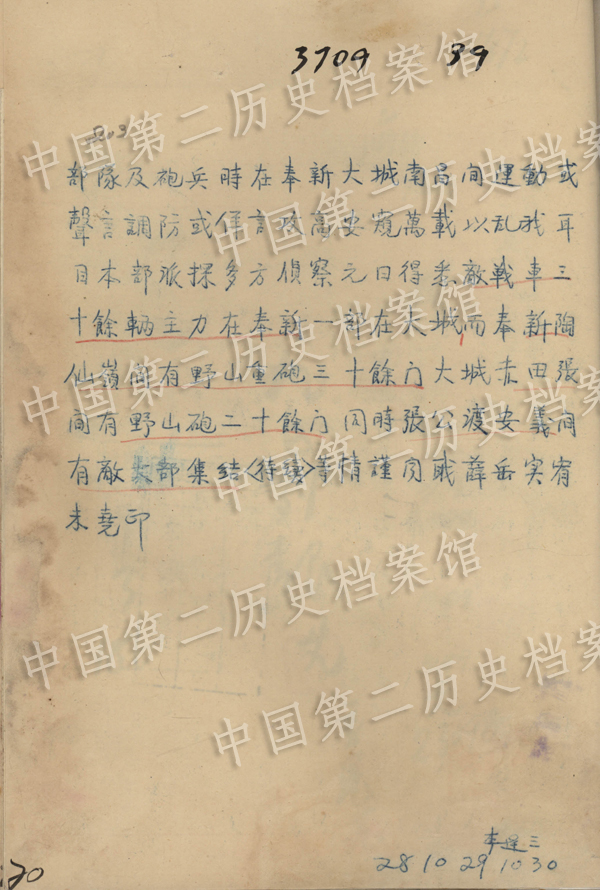 3709 39
部隊及砲兵時在奉新大城南昌間運動或
聲言調防或佯言攻高安窺萬載以乱我耳
目本部派探多方偵察元日得悉敵戰車三
十餘輛主力在奉新一部在大城而奉新陶
仙嶺間有野山重砲三十餘门大城赤田張
间有野山砲二十餘门同時張公渡安義间
有敵大部集結〈待續〉等情謹闻 職薛岳实宥
未堯印
28 10 29 10 30
20
中国第二历史档案馆
中国第二历史档案馆
中国第二历史档案馆
中国第二历史档案馆
中国第二历史档案馆
中国第二历史档案馆
中国第二历史档案馆
中国第二历史档案馆